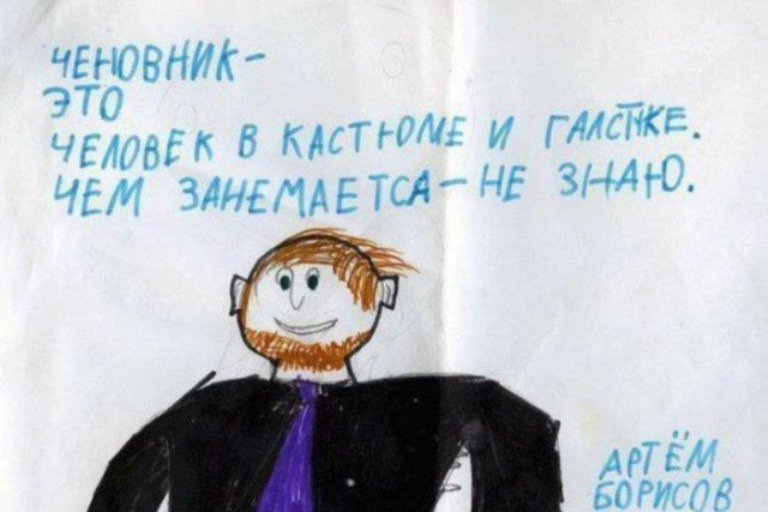 ЧЕНОВНИК-
ЭТО
ЧЕЛОВЕК В КАСТЮМЕ И ГАЛСТКЕ.
ЧЕМ ЗАНЕМАЕТСА-НЕ ЗНАЮ.
АРТЁМ
БОРИСОВ